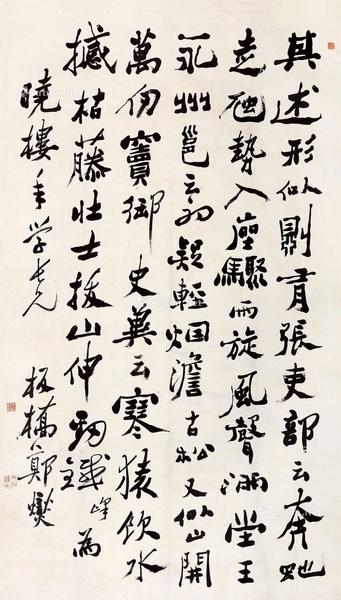 其述形似則有張吏部云奔虵
走虺勢入座驟雨旋風聲滿堂王
永州邕云初疑輕烟澹古松又似山開
萬仞竇御史冀云寒猿飲水
撼枯藤壯士拔山伸勁鐵為
曉樓年學老兄
板橋鄭燮